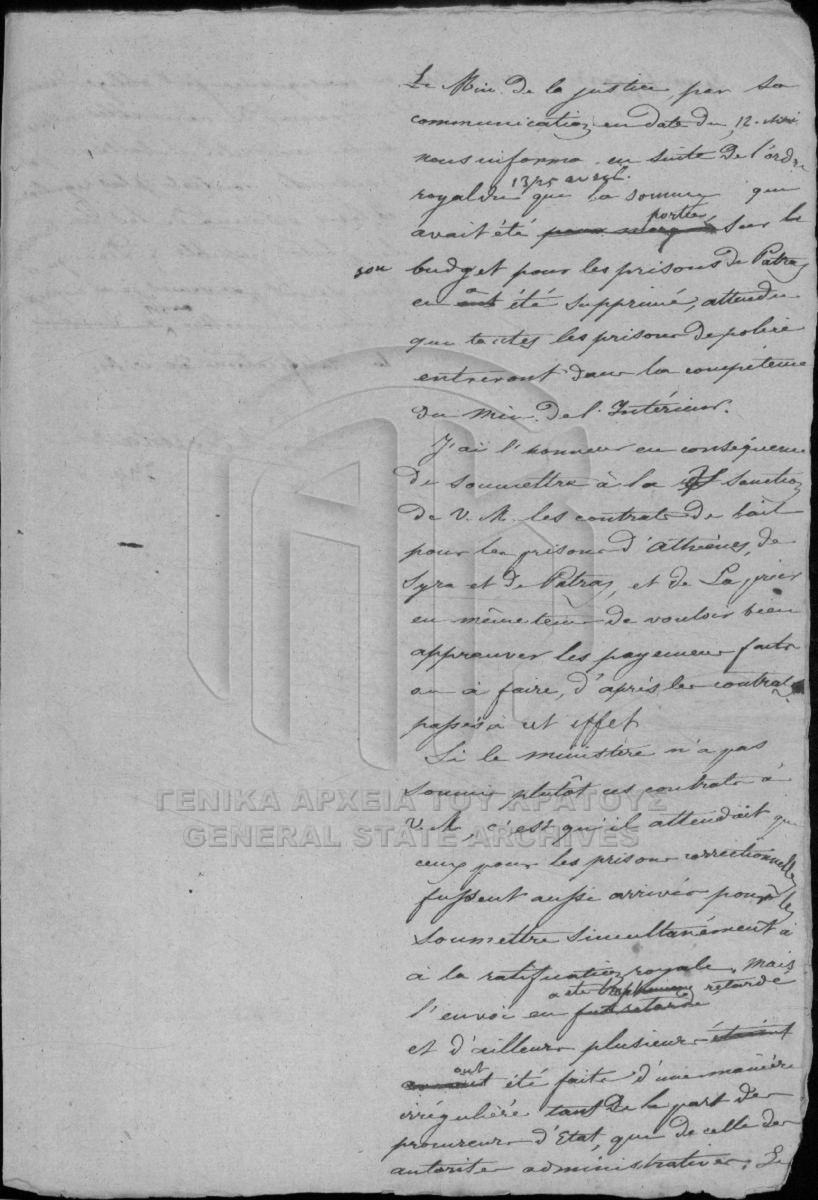 Le Min. de la justice, par sa
communication en date du 12.
nous informa en suite de l'ordre
royal du 13/25 avril. que la somme que
avait été portée sur le
budget pour les prisons de Patras
en a été supprimé, attendu
que toutes les prisons de police
entreront dans la compétence
du Min. de l'Intérieur.
J'ai l'honneur en conséquence
de soumettre à la sanction
de V. M. les contrats de bail
pour les prisons d'Athènes, de
Syra et de Patras, et de La prier
en même tems de vouloir bien
approuver les payemens faits
ou à faire, d'après les contrats
passés à cet effet
Si le ministère n'a pas
soumis plutôt ces contrats à
V. M., c'est qu'il attendait que
ceux pour les prisons correctionnelles
fussent aussi arrivés pour les
soumettre simultanément à
à la ratification royale, mais
l'envoi en a été retardé
et d'ailleurs plusieurs
ont été faits d'une manière
irrégulière tant de la part des
procureurs d'Etat, que de celle des
autorités administratives; Le
ΓΕΝΙΚΑ ΑΡΧΕΙΑ ΤΟΥ ΚΡΑΤΟΥΣ
GENERAL STATE ARCHIVES